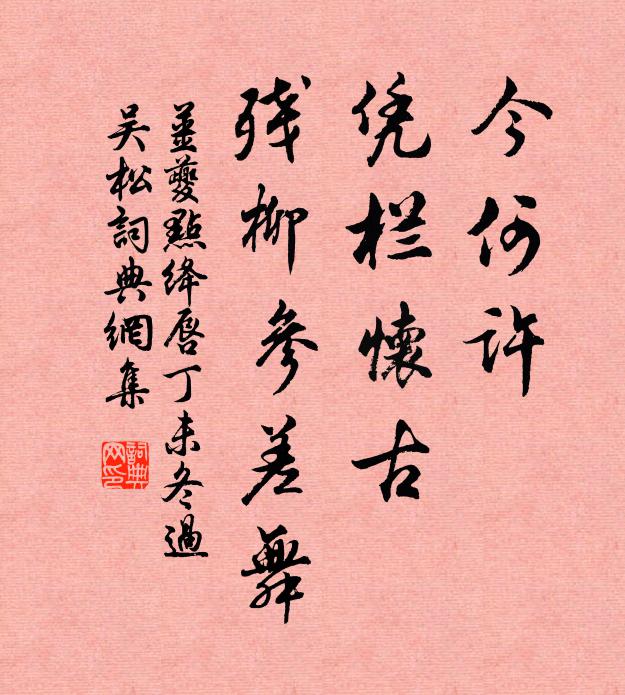 今何许
凭栏怀古
残柳参差舞
姜夔點绛唇丁未冬過
吴松詞典網集
詞典网印